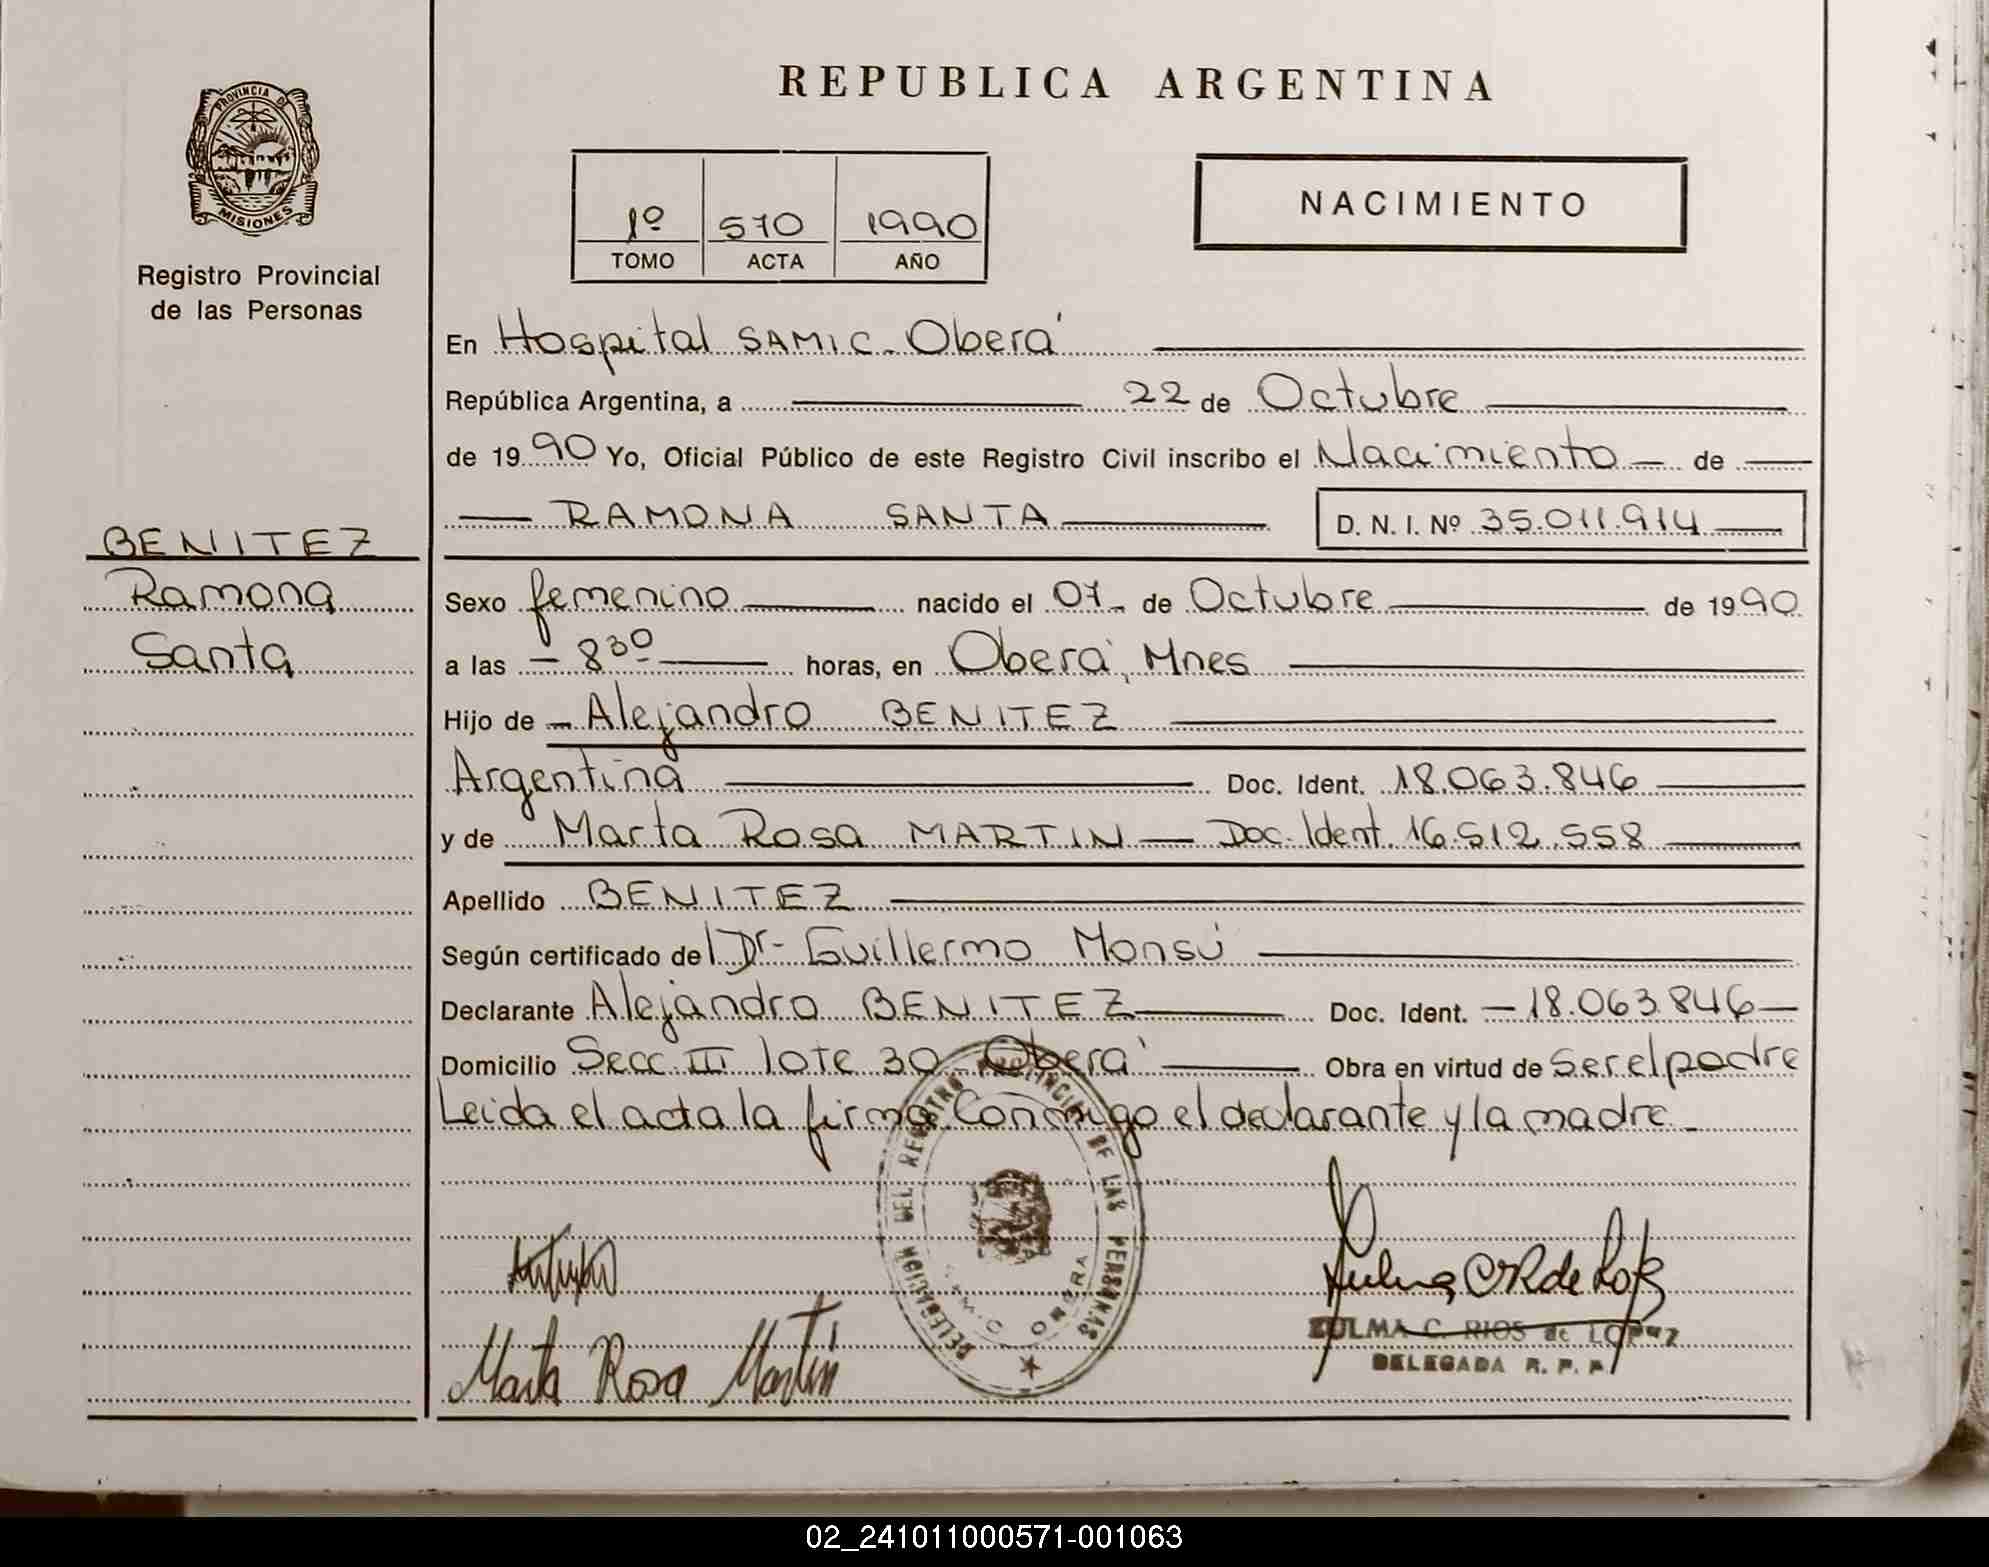 PROVINCIA DE
MISIONES
Registro Provincial
de las Personas
BENITEZ
Ramona
Santa
REPUBLICA ARGENTINA
1º 570 1990
TOMO ACTA AÑO
NACIMIENTO
En Hospital SAMIC - Oberá
República Argentina, a 22 de Octubre
de 1990 Yo, Oficial Público de este Registro Civil inscribo el Nacimiento de
RAMONA SANTA D. N. I. Nº 35.011.914
Sexo femenino nacido el 07 de Octubre de 1990
a las 8 30 horas, en Oberá, Mnes
Hijo de Alejandro BENITEZ
Argentina Doc. Ident. 18.063.846
y de Marta Rosa MARTIN — Doc. Ident. 16.512.558
Apellido BENITEZ
Según certificado del Dr. Guillermo Monsú
Declarante Alejandro BENITEZ Doc. Ident. 18.063.846
Domicilio Secc. III lote 30 Oberá Obra en virtud de Ser el padre
Leida el acta la firma Conmigo el declarante y la madre.
DELEGACION DEL REGISTRO PROVINCIAL DE LAS PERSONAS
SAMIC OBERA
Marta Rosa Martin
ZULMA C. RIOS de LOPEZ
DELEGADA R. P. P.
02_241011000571-001063